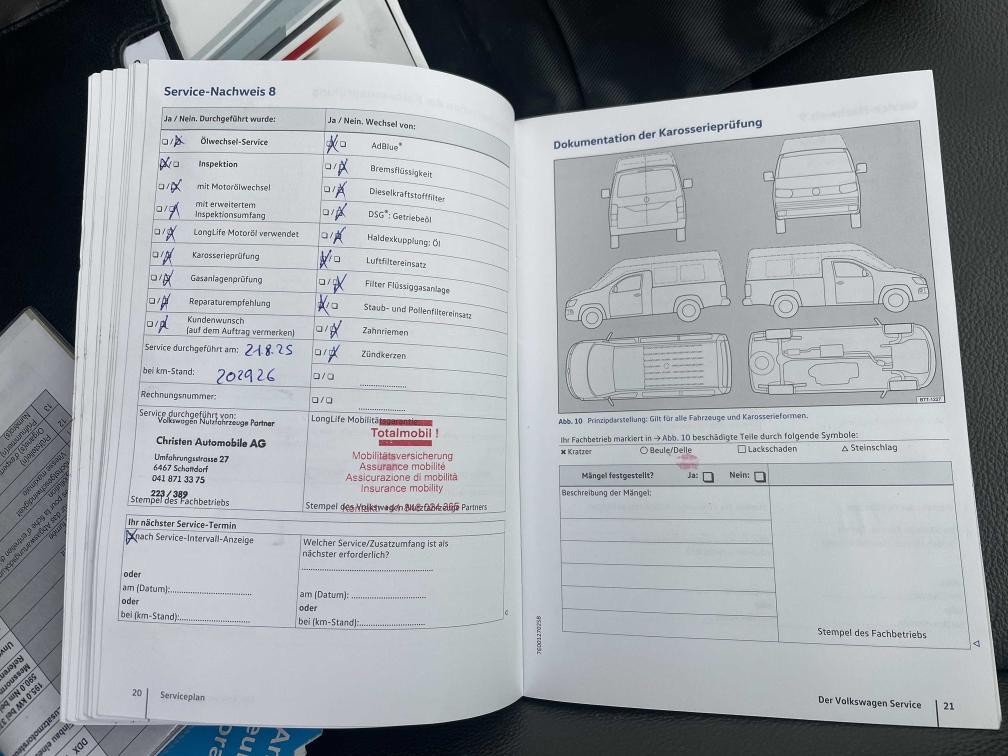 Service-Nachweis 8
Ja / Nein. Durchgeführt wurde:
Ölwechsel-Service
Inspektion
mit Motorölwechsel
mit erweitertem
Inspektionsumfang
LongLife Motoröl verwendet
Karosserieprüfung
Gasanlagenprüfung
Reparaturempfehlung
Kundenwunsch
(auf dem Auftrag vermerken)
Service durchgeführt am: 21.8.25
bei km-Stand: 202926
Rechnungsnummer:
Service durchgeführt von:
Volkswagen Nutzfahrzeuge Partner
Christen Automobile AG
Umfahrungsstrasse 27
6467 Schattdorf
041 871 33 75
223 / 389
Stempel des Fachbetriebs
Ja / Nein. Wechsel von:
AdBlue®
Bremsflüssigkeit
Dieselkraftstofffilter
DSG®: Getriebeöl
Haldexkupplung: Öl
Luftfiltereinsatz
Filter Flüssiggasanlage
Staub- und Pollenfiltereinsatz
Zahnriemen
Zündkerzen
LongLife Mobilitätsgarantie
Totalmobil !
Mobilitätsversicherung
Assurance mobilité
Assicurazione di mobilità
Insurance mobility
Stempel des Volkswagen Nutzfahrzeuge Partners
Ihr nächster Service-Termin
nach Service-Intervall-Anzeige
oder
am (Datum):
oder
bei (km-Stand):
Welcher Service/Zusatzumfang ist als
nächster erforderlich?
am (Datum):
oder
bei (km-Stand):
20
Serviceplan
Dokumentation der Karosserieprüfung
BTT-1227
Abb. 10 Prinzipdarstellung: Gilt für alle Fahrzeuge und Karosserieformen.
Ihr Fachbetrieb markiert in → Abb. 10 beschädigte Teile durch folgende Symbole:
Kratzer
Beule/Delle
Lackschaden
Steinschlag
Mängel festgestellt? Ja: Nein:
Beschreibung der Mängel:
Stempel des Fachbetriebs
7E0012702SB
Der Volkswagen Service
21